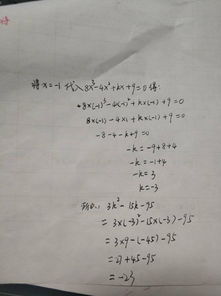 将x=-1代入8x³-4x²+kx+9=0得:
8×(-1)³-4(-1)²+k×(-1)+9=0
8×(-1)-4×1+k×(-1)+9=0
-8-4-k+9=0
-k=-9+8+4
-k=-1+4
-k=3
k=-3
所以: 3k²-15k-95
=3×(-3)²-15×(-3)-95
=3×9-(-45)-95
=27+45-95
=-23